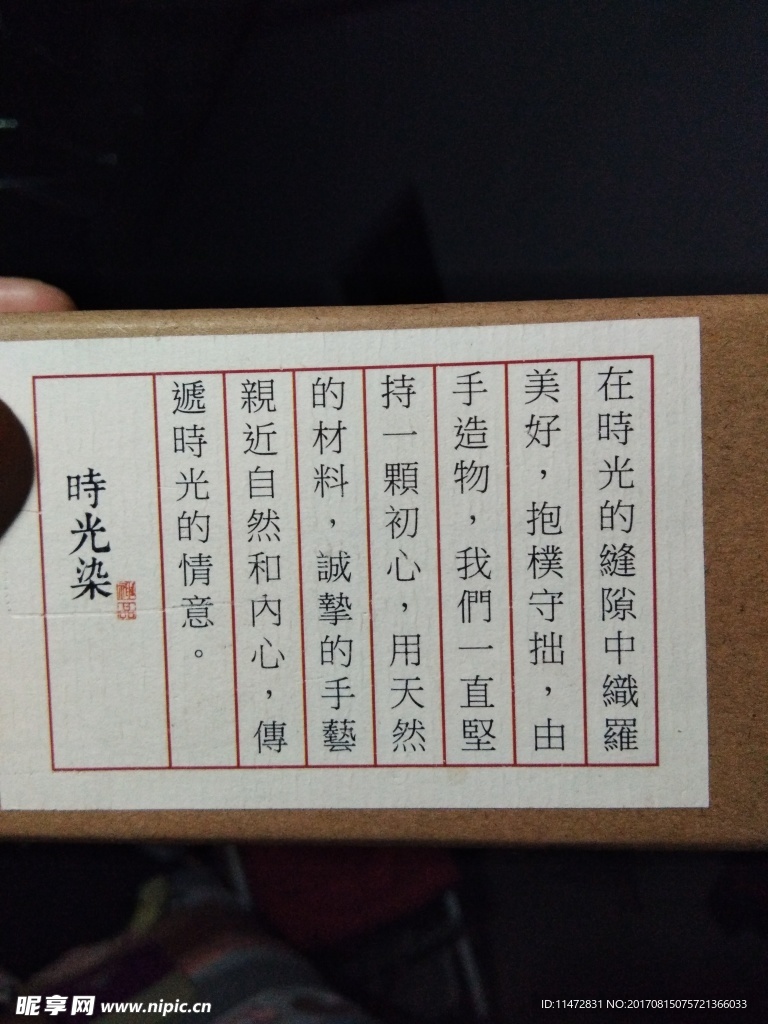 在時光的縫隙中織羅
美好，抱樸守拙，由
手造物，我們一直堅
持一顆初心，用天然
的材料，誠摯的手藝
親近自然和內心，傳
遞時光的情意。
時光染
昵享网 www.nipic.cn
ID:11472831 NO:20170815075721366033